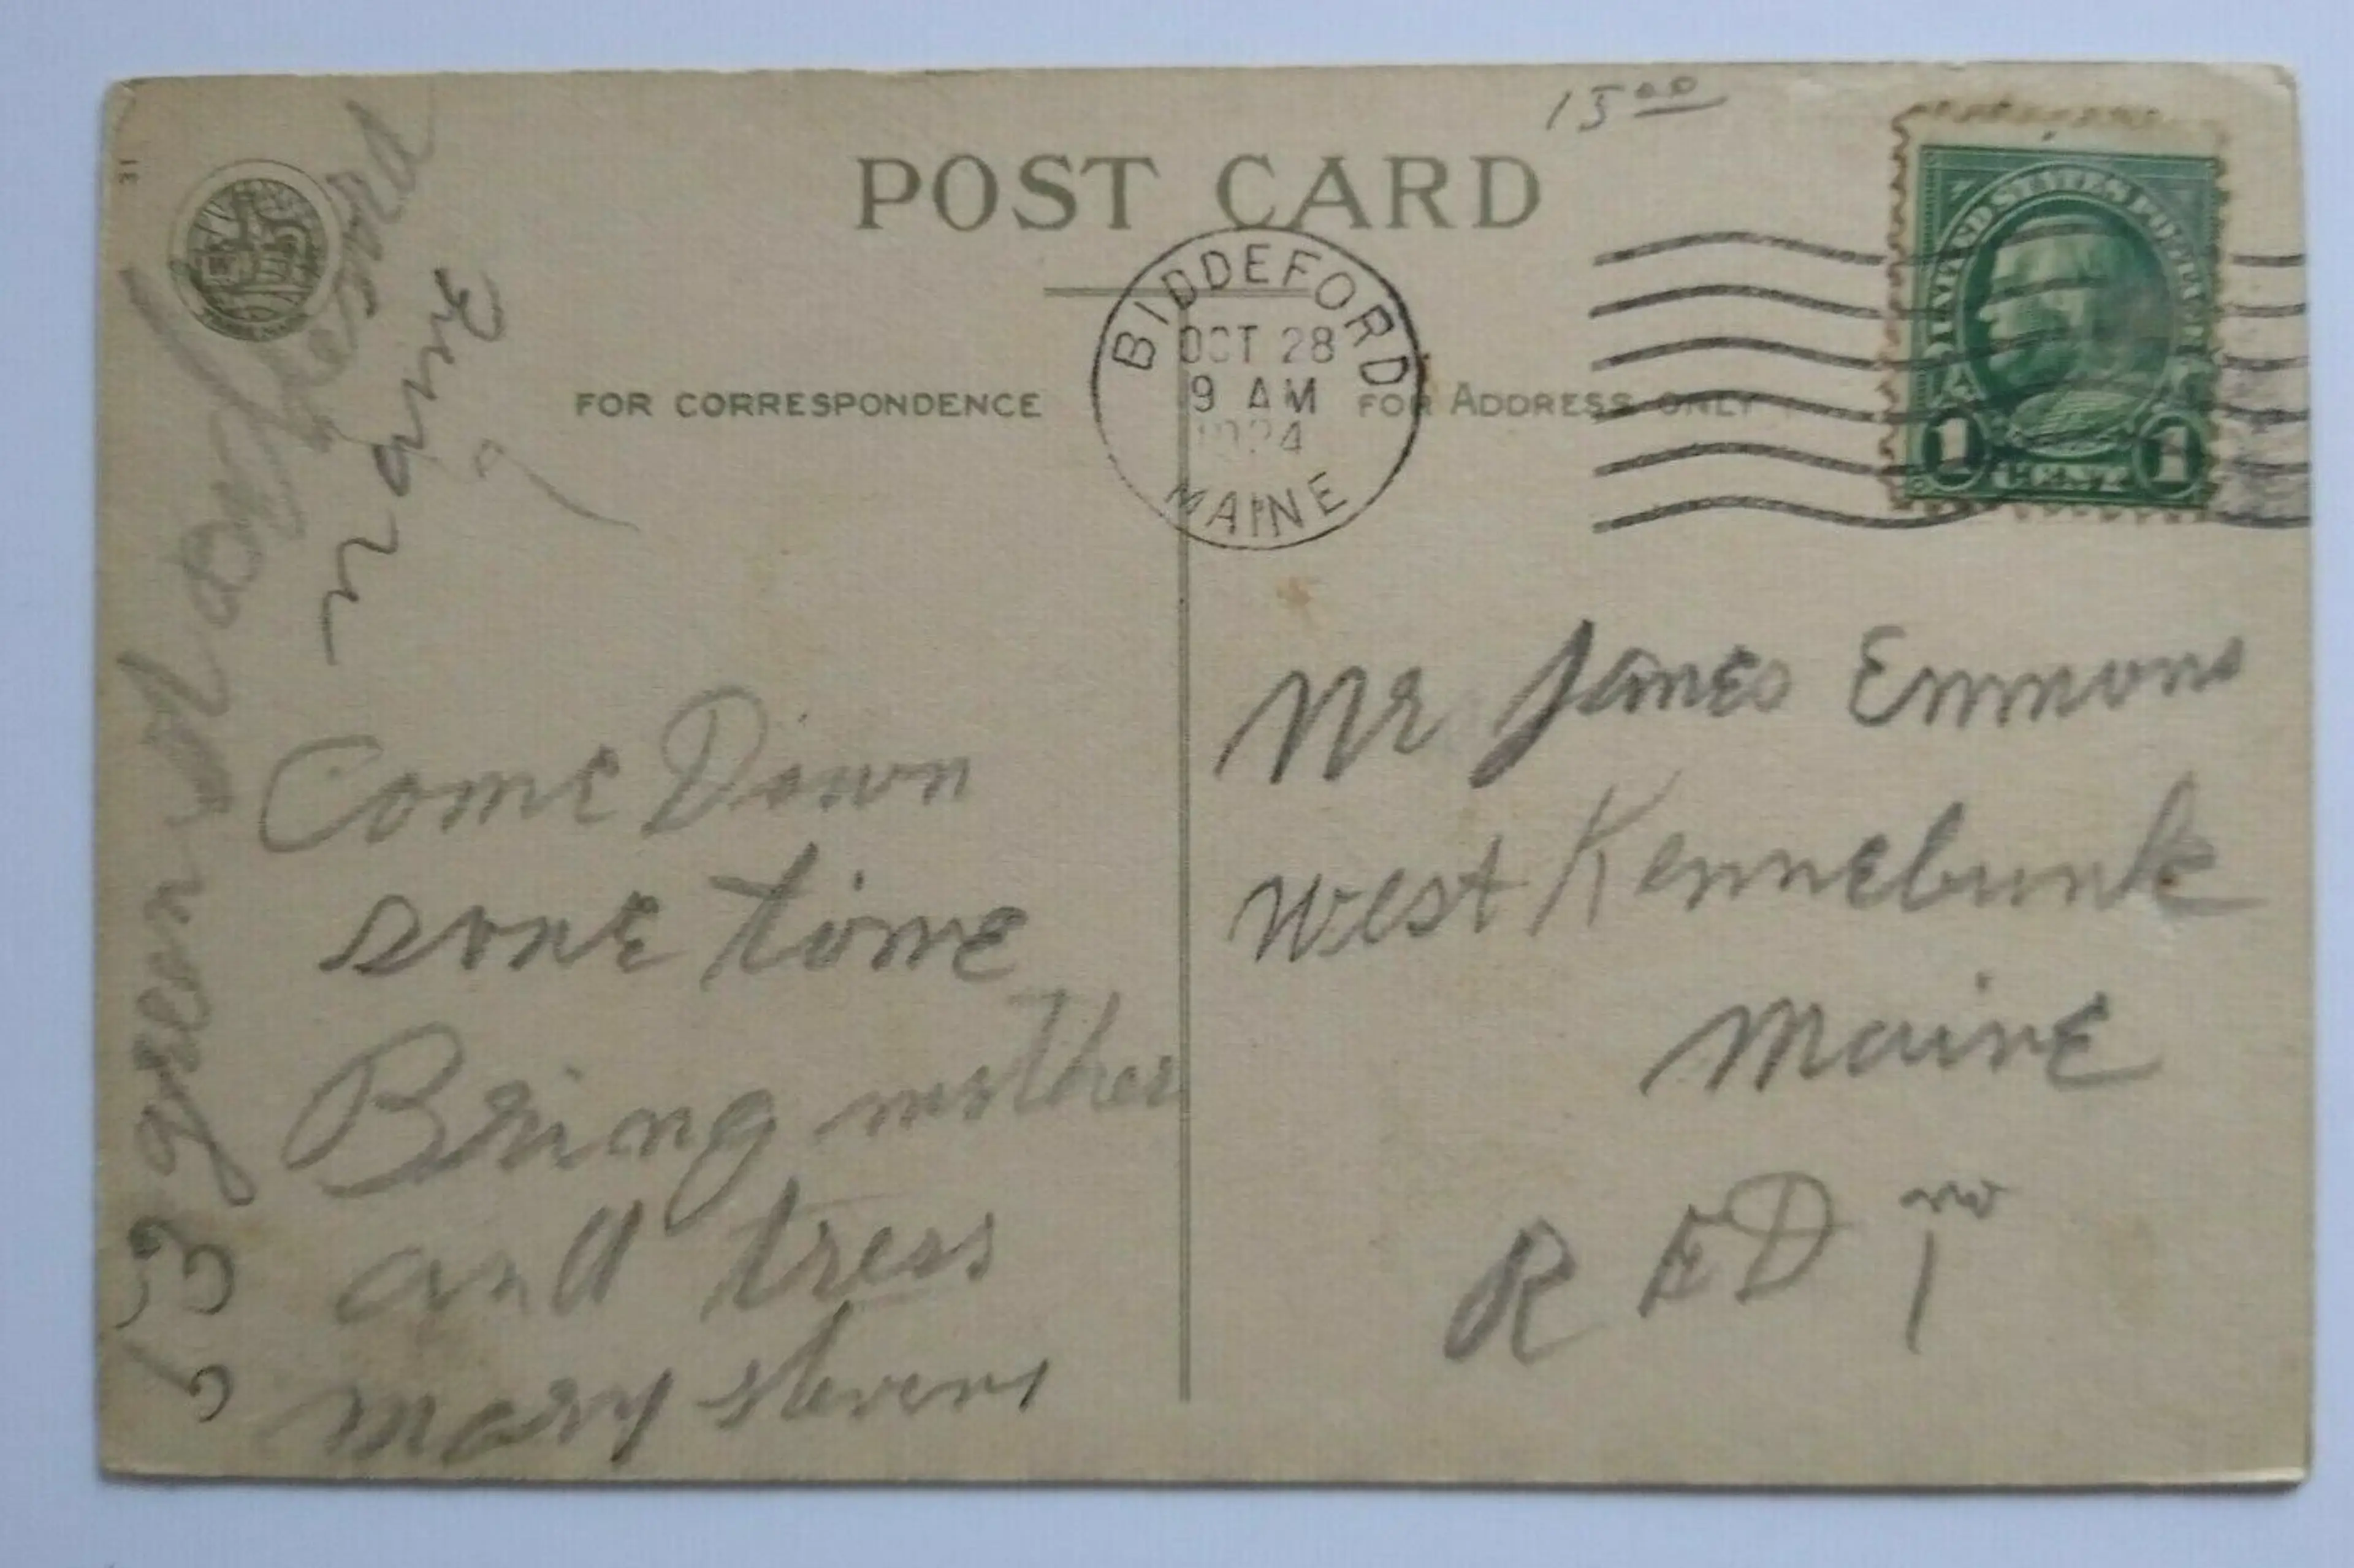 15 00
POST CARD
31
BIDDEFORD
OCT 28
9 AM
1924
MAINE
UNITED STATES POSTAGE
1 CENT 1
FOR CORRESPONDENCE
FOR ADDRESS ONLY
53 green st
maine
Come Down
some time
Bring mother
and tress
mary stevens
Mr James Emmons
West Kennebunk
Maine
R F D no
1